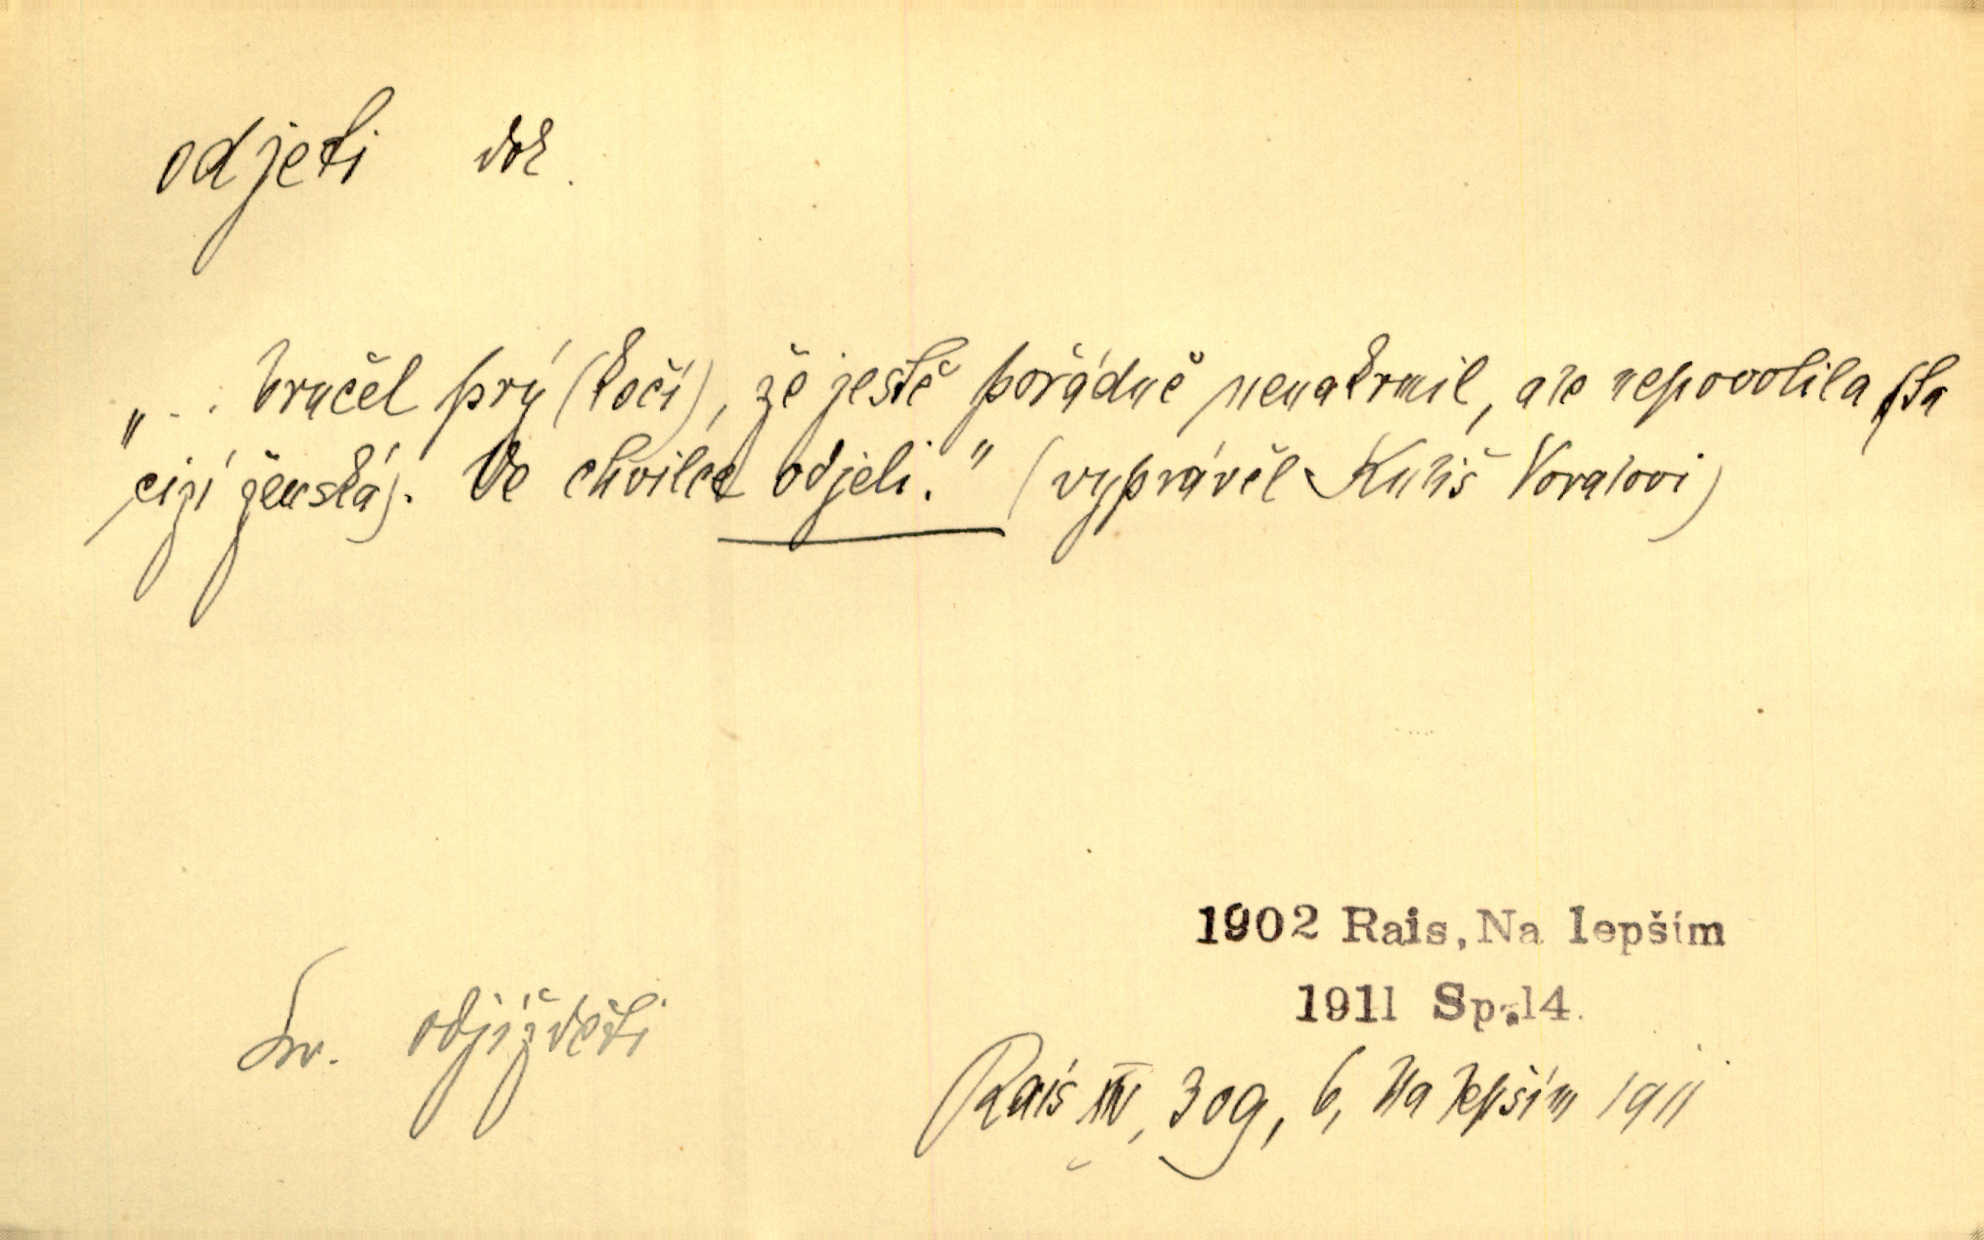 odjeti dok.
„.. bručel prý (kočí), že ještě pořádně nenakrmil, ale nepovolila (ta
cizí ženská). Ve chvilce odjeli." (vyprávěl Kuliš Voralovi)
1902 Rais, Na lepším
1911 Sp. 14.
Sr. odjížděti
Rais XIV, 309, 6, Na lepším 1911